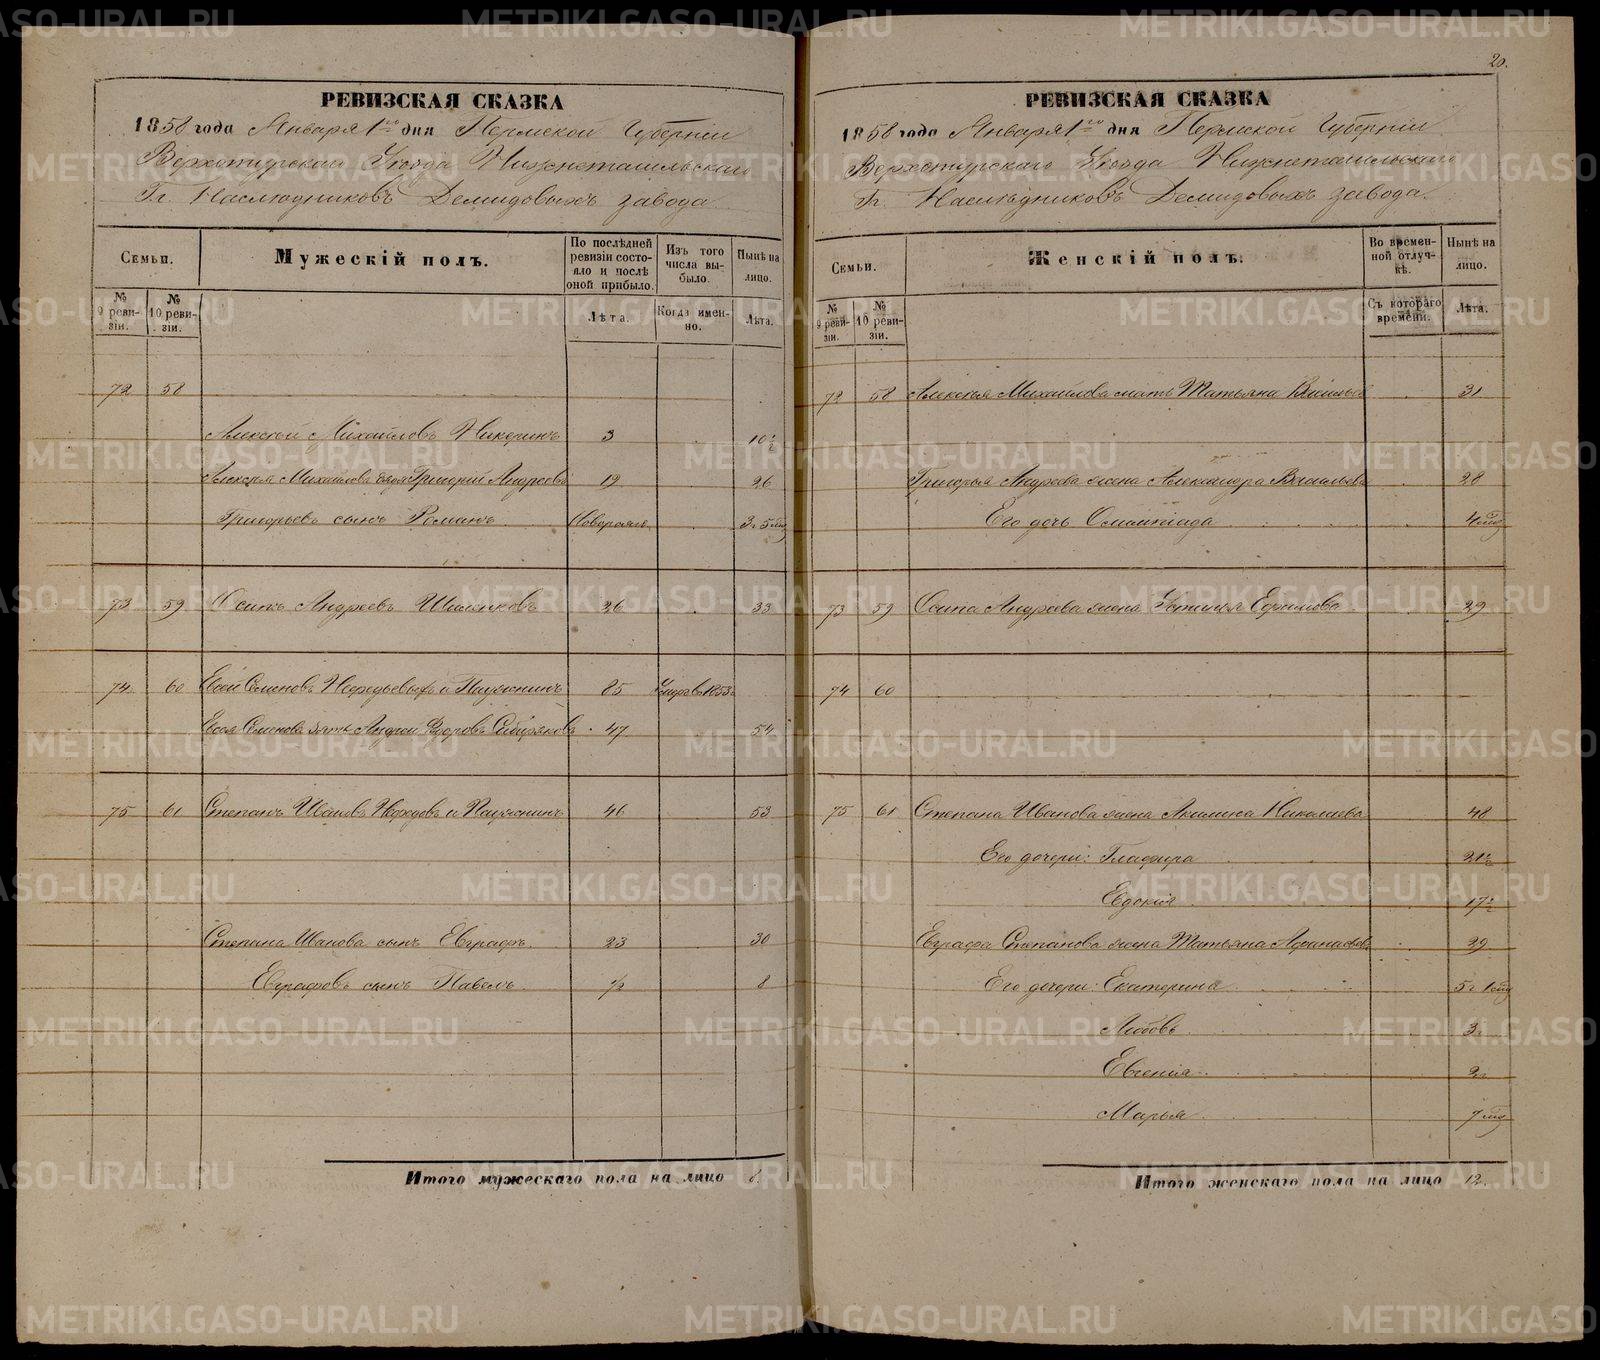 РЕВИЗСКАЯ СКАЗКА
1858 года Января 1го дня Пермской Губерніи
Верхотурскаго Уѣзда Нижнетагильскаго
Гг. Наслѣдниковъ Демидовыхъ завода
Семьи.
Мужескій полъ.
По послѣдней ревизіи состояло и послѣ оной прибыло.
Изъ того числа выбыло.
Нынѣ на лицо.
№ 9 ревизіи.
№ 10 ревизіи.
Лѣта.
Когда именно.
Лѣта.
72 58
Алексѣй Михайловъ 3 10½
Алексѣя Михайлова дядя Григорій Андреевъ 19 26
Григорьевъ сынъ Романъ Новорожд. 3г 5 мѣс
73 59 Осипъ Андреевъ 26 33
74 60 Семеновъ 85 Умре въ 1853
Семенова зять Андрей 47 54
75 61 Степанъ Ивановъ 46 53
Степана Иванова сынъ Евграфъ 23 30
Евграфовъ сынъ Павелъ ½ 8
Итого мужескаго пола на лицо 8.
20.
РЕВИЗСКАЯ СКАЗКА
1858 года Января 1го дня Пермской Губерніи
Верхотурскаго Уѣзда Нижнетагильскаго
Гг. Наслѣдниковъ Демидовыхъ завода.
Семьи.
Женскій полъ.
Во временной отлучкѣ.
Нынѣ на лицо.
№ 9 ревизіи.
№ 10 ревизіи.
Съ котораго времени.
Лѣта.
72 58 Алексѣя Михайлова мать Татьяна 31
Григорья Андреева жена Александра Васильева 28
Его дочь 4 мѣс
73 59 Осипа Андреева жена Устинья Ефимова 29
74 60
75 61 Степана Иванова жена Акилина Николаева 48
Его дочери: Глафира 21½
Евдокія 17½
Евграфа Степанова жена Татьяна Афанасьева 29
Его дочери: Екатерина 5г 1 мѣс
Любовь 3г
Евгенія 2г
Марья 7 мѣс
Итого женскаго пола на лицо 12.
METRIKI.GASO-URAL.RU